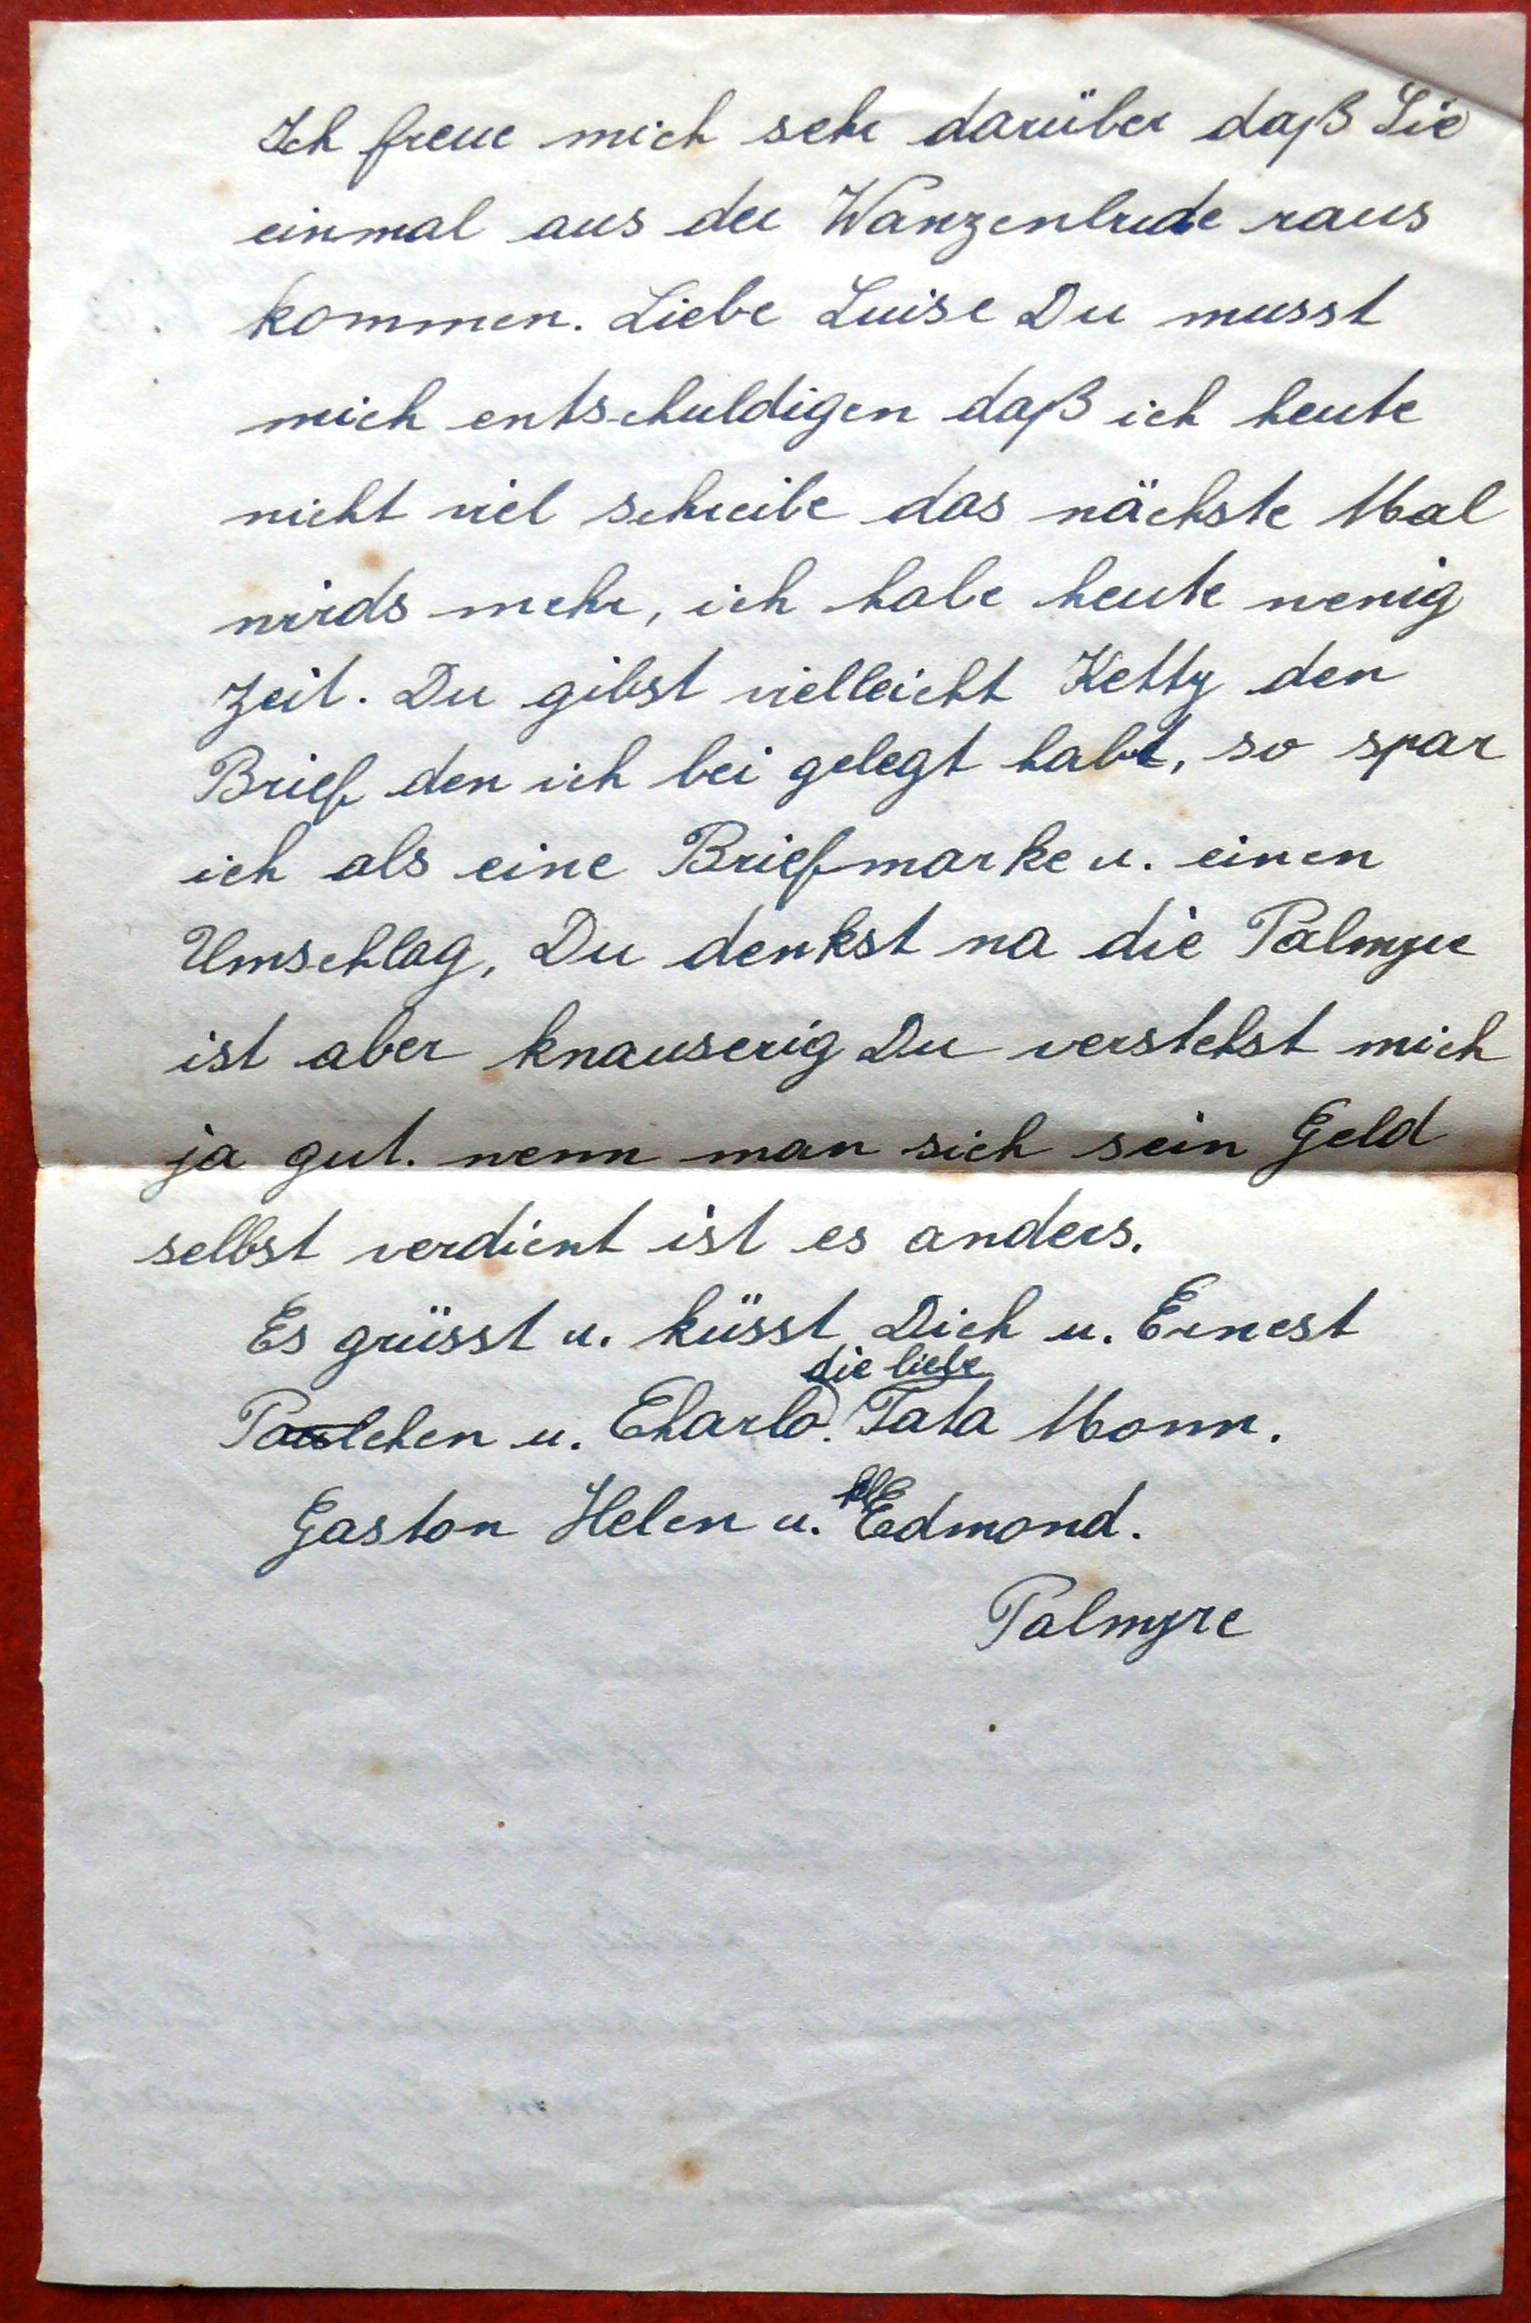 Ich freue mich sehr darüber daß Sie
einmal aus der Wanzenbude raus
kommen. Liebe Luise Du musst
mich entschuldigen daß ich heute
nicht viel schreibe das nächste Mal
wirds mehr, ich habe heute wenig
Zeit. Du gibst vielleicht Ketty den
Brief den ich bei gelegt habe, so spar
ich als eine Briefmarke u. einen
Umschlag, Du denkst na die Palmyre
ist aber knauserig Du verstehst mich
ja gut. wenn man sich sein Geld
selbst verdient ist es anders.
Es grüsst u. küsst Dich u. Ernest
die liebe
Paulchen u. Charlo. Tata Monn.
Gaston Helen u. Edmond.
Palmyre